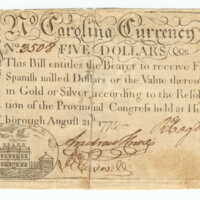 No Carolina Currency
No. 3508 FIVE DOLLARS
This Bill entitles the Bearer to receive F
Spanish milled Dollars or the Value thereo
in Gold or Silver, according to the Resol
tion of the Provincial Congress held at H
borough August 21st 1775
Andrew